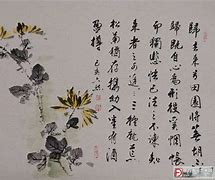 歸去來兮田園將蕪胡不
歸既自心為形役奚惆悵
而獨悲悟已往之不諫知
來者之可追三徑就荒
松菊猶存攜幼入室有酒
盈樽